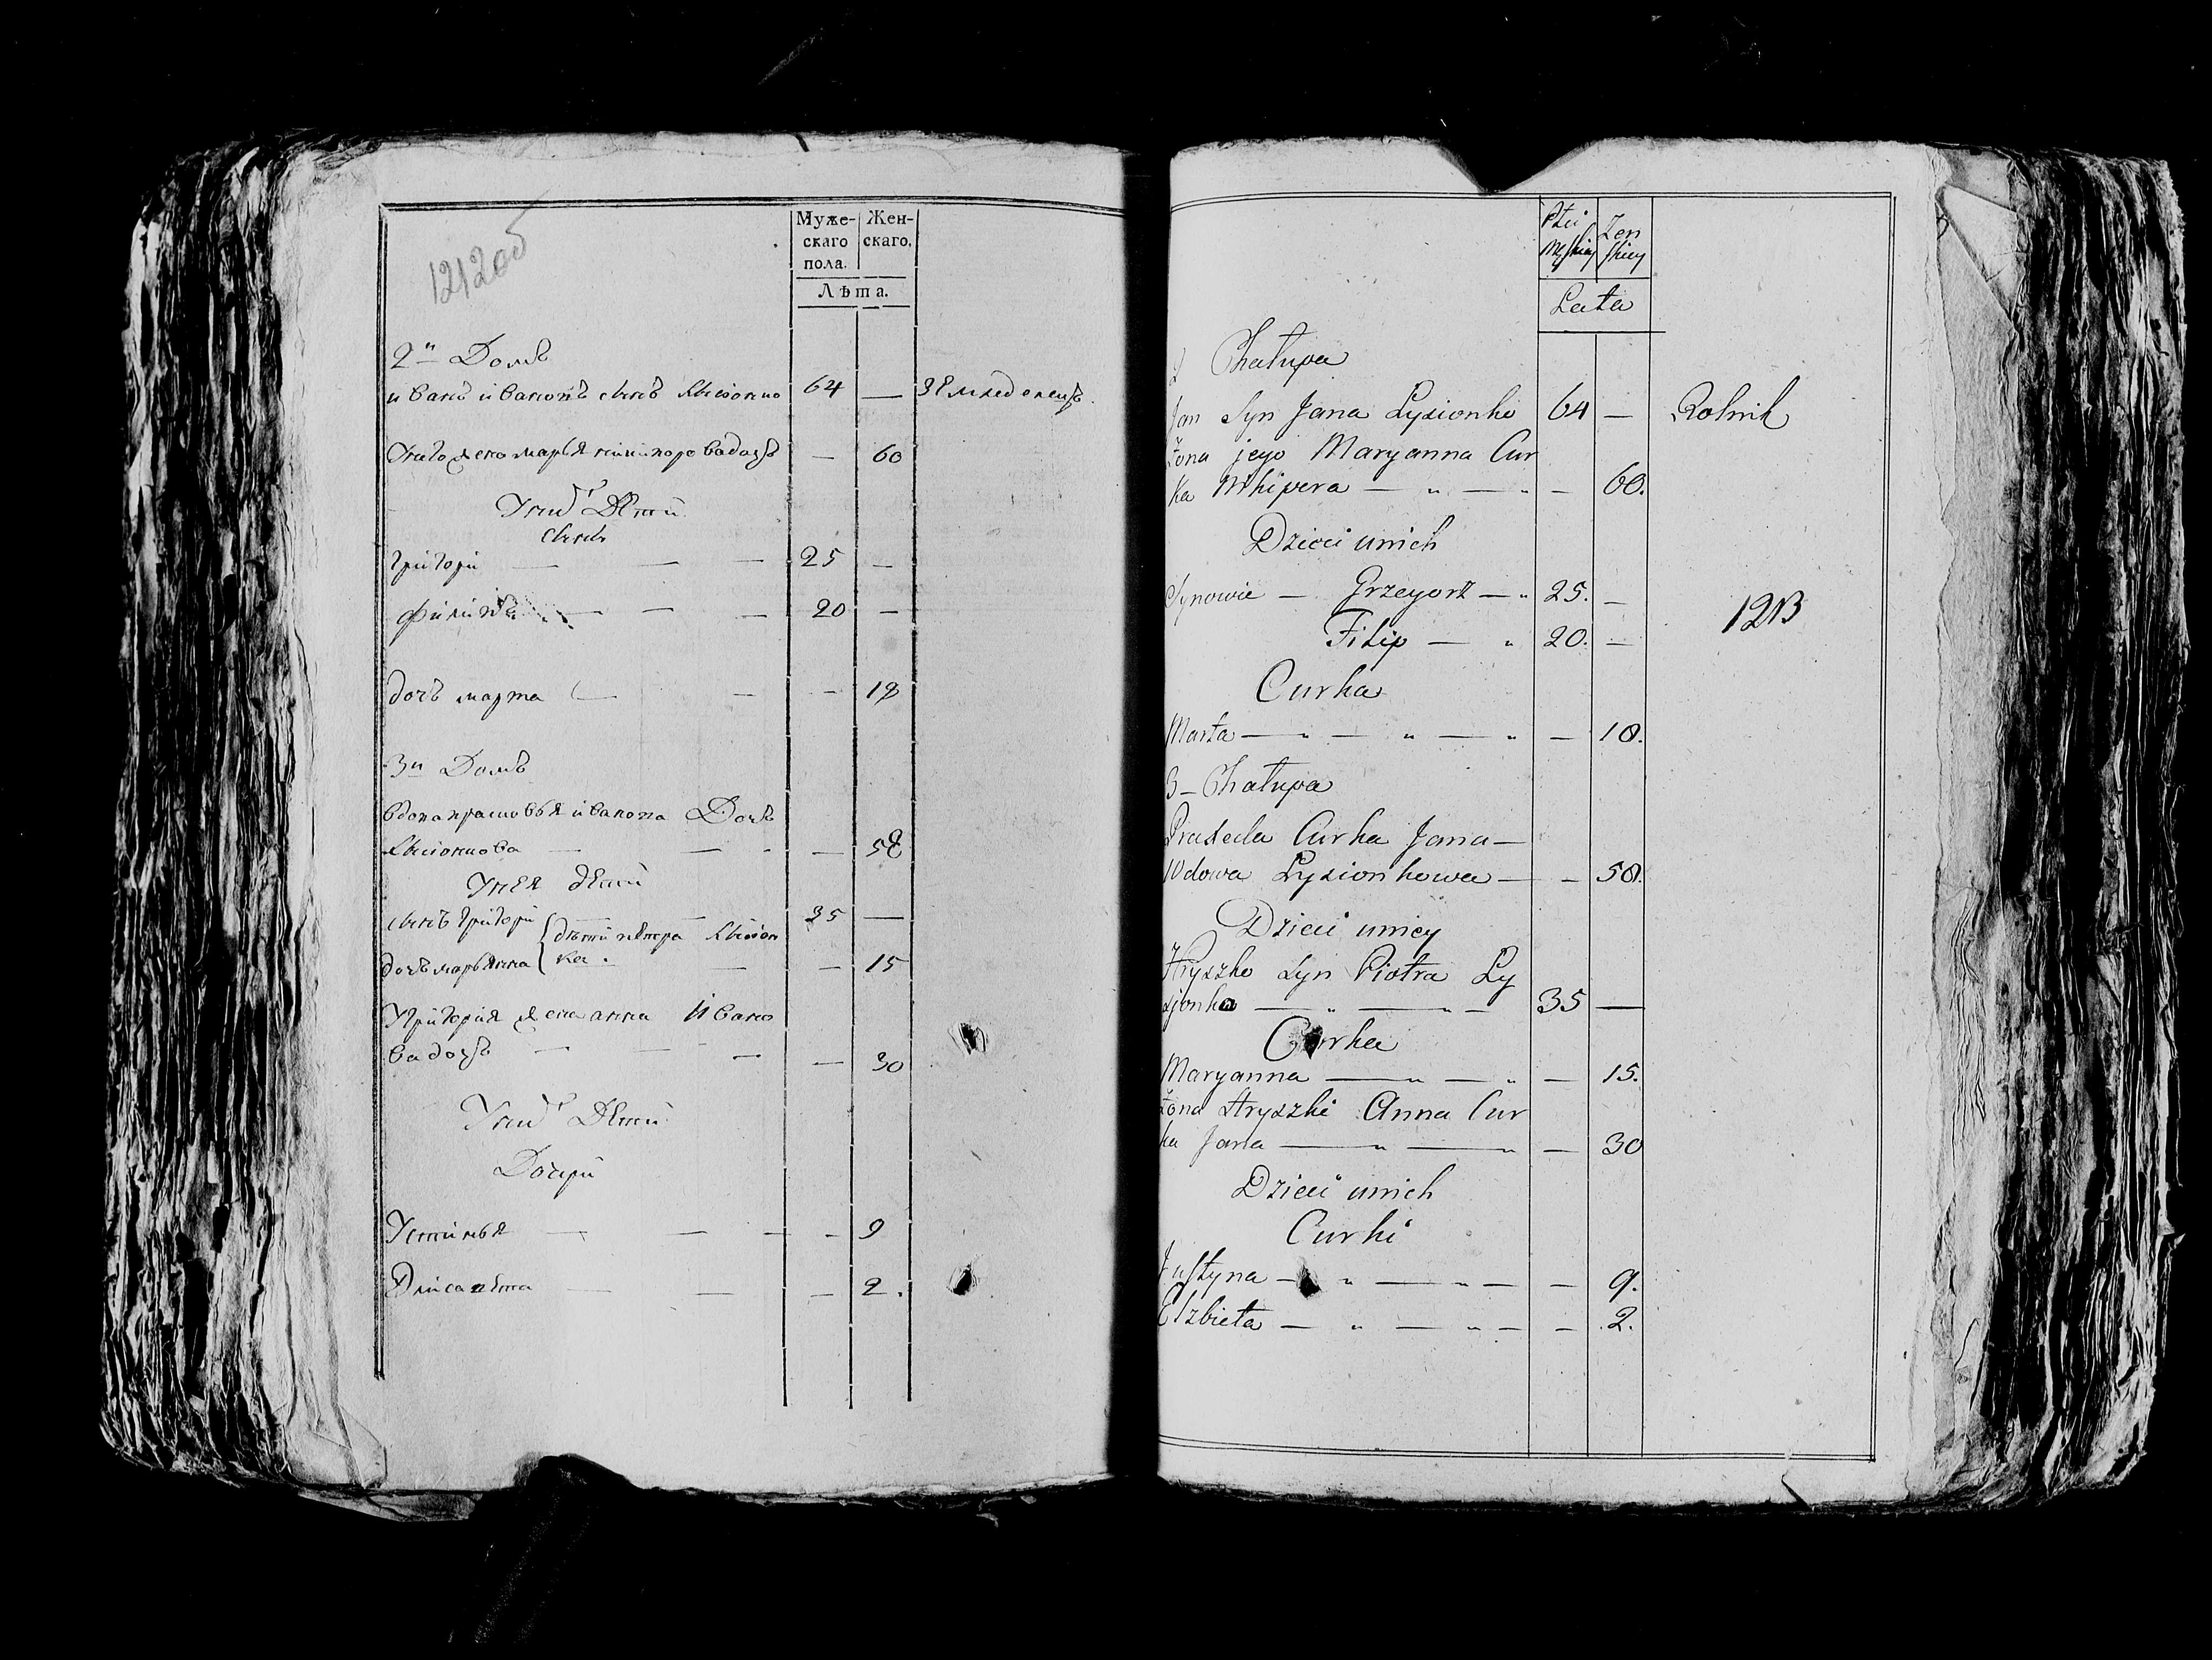 1212об
Муже- Жен-
скаго скаго.
пола.
Лѣта.
2й Домъ
иванъ ивановъ сынъ Лысionko 64 — Земледелецъ
Унего жена марья никипорова дочь — 60
Унихъ Дети
сынъ
григори — — — 25 —
Филипъ — — — 20 —
дочъ марта — — — 18
3й Домъ
вдова прасковья ивапова Дочь
— — — 58
Унея дети
сынъ григори — — 35 —
дети петра Лысіон
дочъ марьянна ка. — — 15
Угригорія жена анна Ивано
ва дочь — — — — 30
Унихъ Дети
Дочери
Устинья — — — — 9
Элисавета — — — 2.
Płci Żeń
Męskiej skiey
Lata
2 Chałupa
Jan Syn Jana Łysionki 64 — Rolnik
Żona jego Maryanna Cur
ka Nikipera — " — " — 60.
Dzieci unich
Synowie — Grzegorz — " 25. —
1213
Filip — " 20. —
Curka
Marta — " — " — " — 18.
3 – Chałupa
Praxeda Curka Jana —
Wdowa Łysionkowa — — 58.
Dzieci unicy
Hryszko Syn Piotra Ły
sionka — " — " — 35 —
Curka
Maryanna — " — " — 15.
Żona Hryszki Anna Cur
ka Jana — " — " — 30
Dzieci unich
Curki
Justyna — " — " — — 9.
Elzbieta — " — " — — 2.